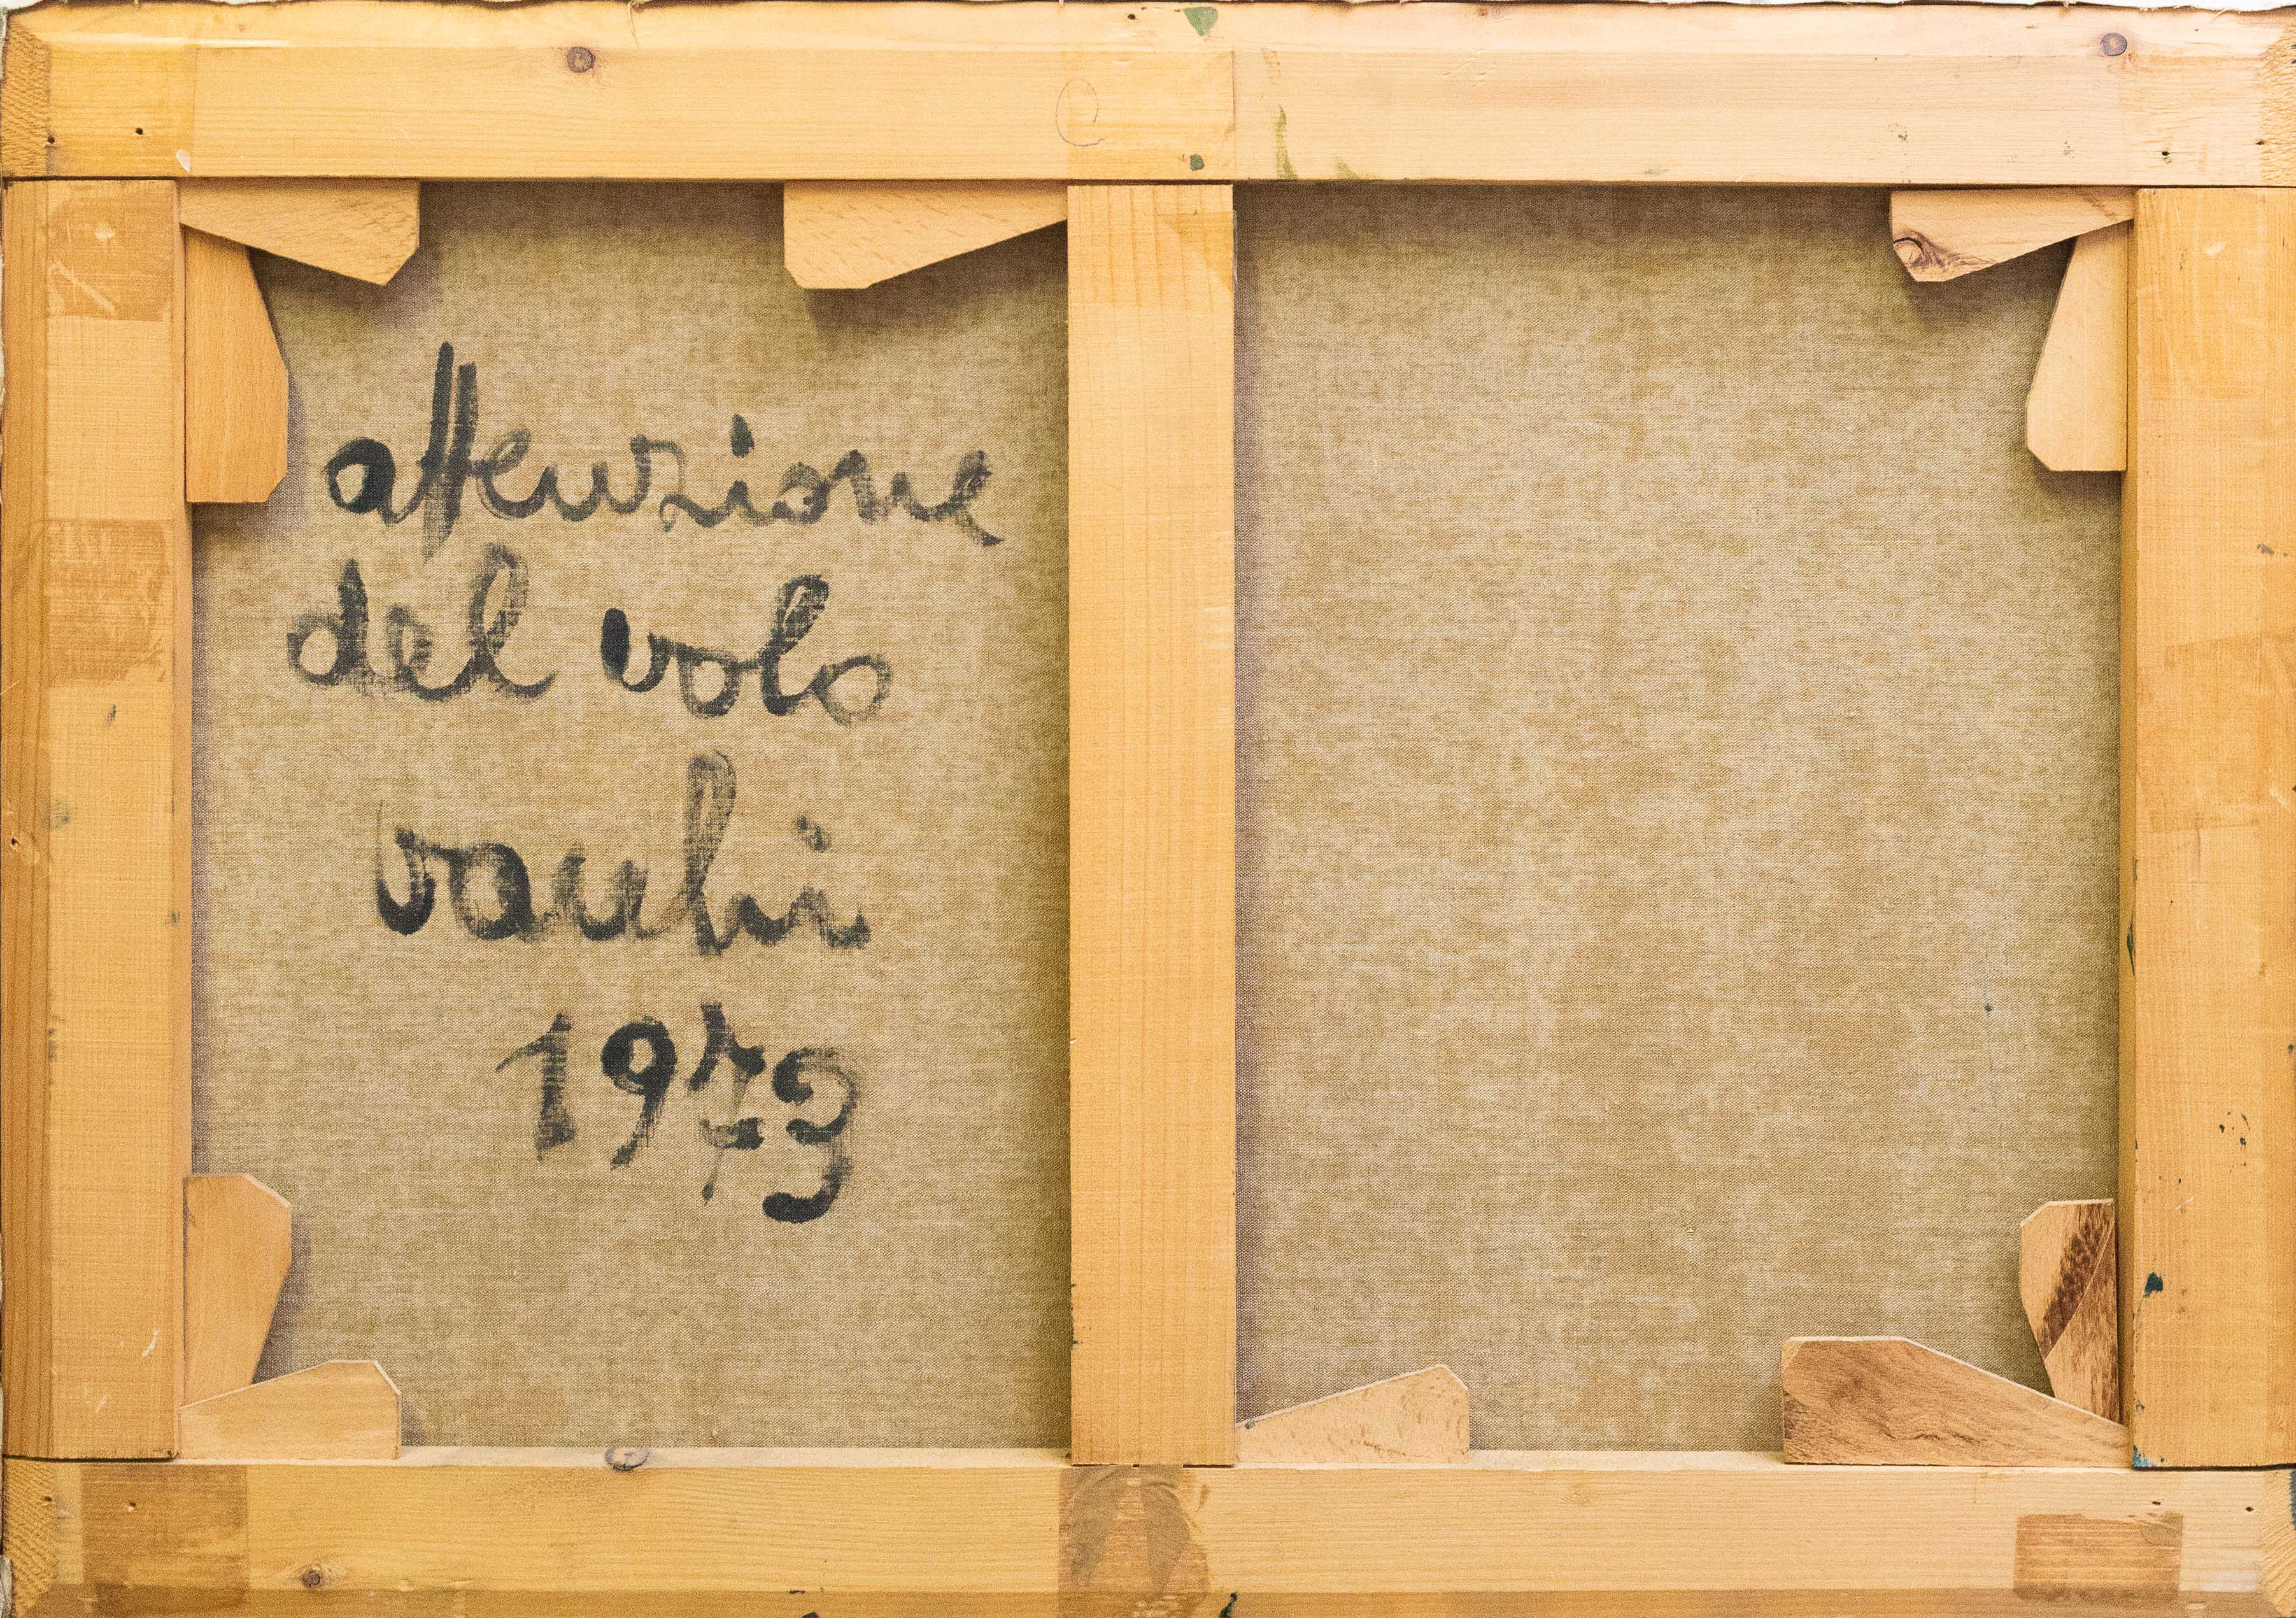 attenzione
del volo
vacchi
1973
C